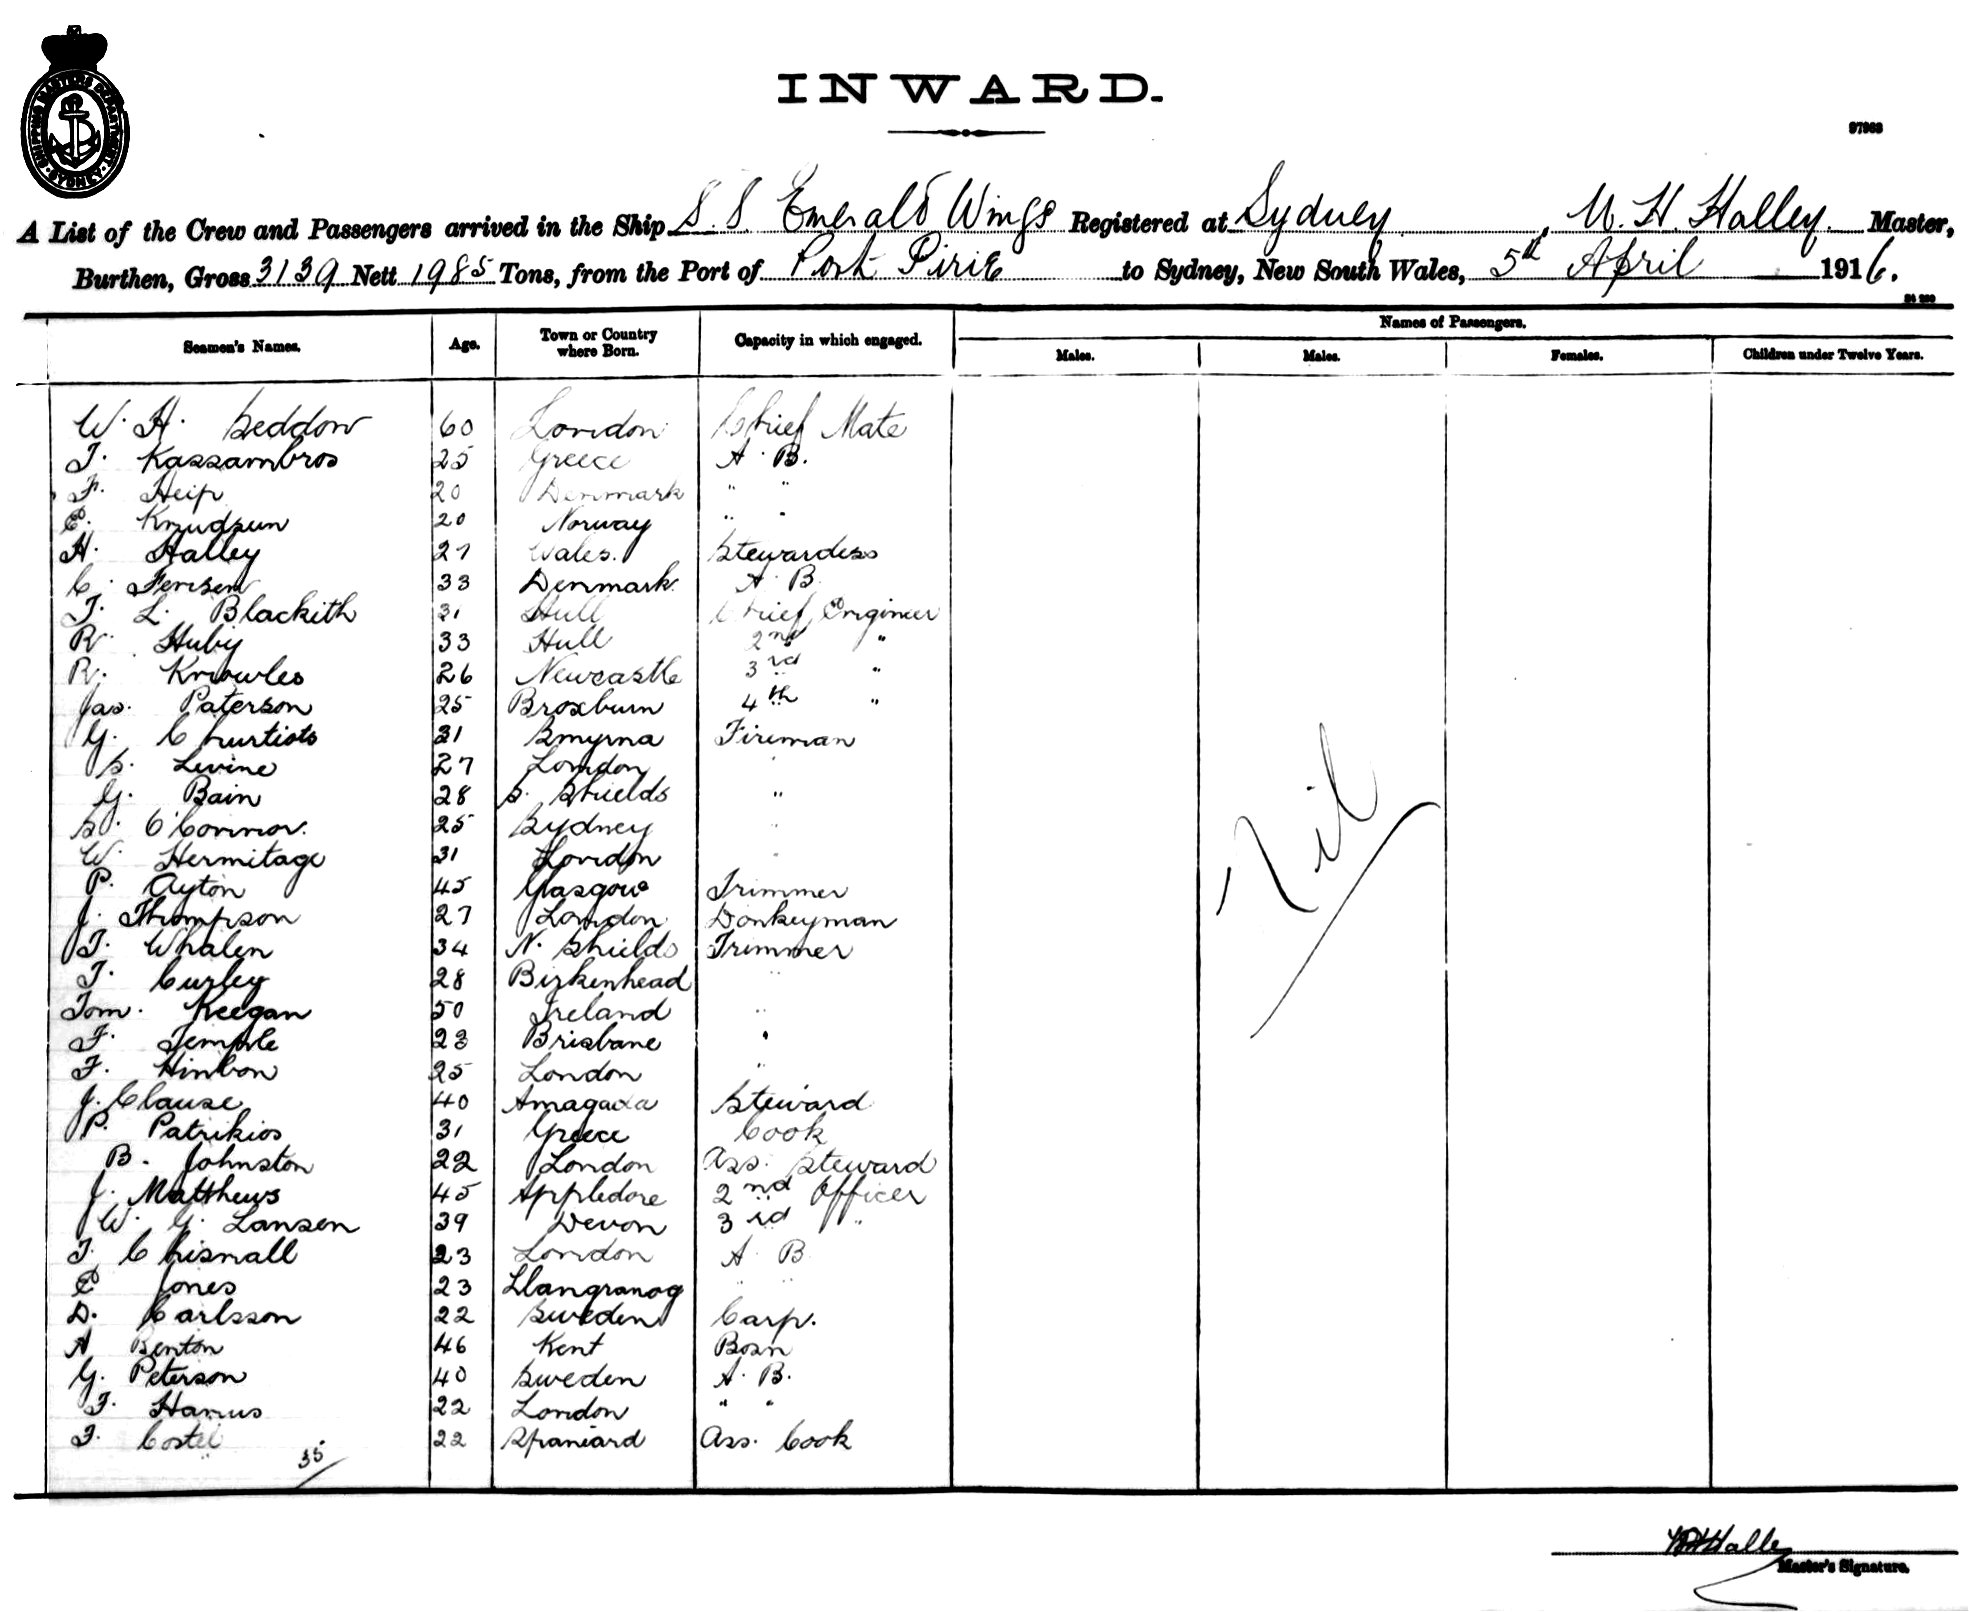 SHIPPING MASTERS DEPARTMENT
SYDNEY
INWARD.
97963
A List of the Crew and Passengers arrived in the Ship S.S. Emerald Wings Registered at Sydney, W. H. Halley. Master,
Burthen, Gross 3139 Nett 1985 Tons, from the Port of Port Pirie to Sydney, New South Wales, 5th April 1916.
Names of Passengers.
Seamen's Names. Age. Town or Country where Born. Capacity in which engaged. Males. Males. Females. Children under Twelve Years.
W. H. Seddon 60 London Chief Mate
T. Kassambros 25 Greece A. B.
F. Heip 20 Denmark " "
E. Knudsun 20 Norway " "
H. Halley 27 Wales. Stewardess
C. Fensen 33 Denmark. A. B.
T. L. Blackith 31 Hull Chief Engineer
R. Huby 33 Hull 2nd "
R. Knowles 26 Newcastle 3rd "
Jas. Paterson 25 Broxburn 4th "
G. Churtists 31 Smyrna Fireman
S. Levine 27 London "
G. Bain 28 S. Shields "
S. O'Connor. 25 Sydney "
W. Hermitage 31 London "
P. Ayton 45 Glasgow Trimmer
J. Thompson 27 London Donkeyman
T. Whalen 34 N. Shields Trimmer
T. Curley 28 Birkenhead "
Tom. Keegan 50 Ireland "
F. Temple 23 Brisbane "
F. Hinbon 25 London "
J. Clause 40 Steward
P. Patrikios 31 Greece Cook
B. Johnston 22 London Ass. Steward
J. Matthews 45 Appledore 2nd Officer
W. G. Lansen 39 Devon 3rd "
T. Chismall 23 London A. B.
E Jones 23 Llangranog " "
D. Carlsson 22 Sweden Carp.
A Benton 46 Kent Bosn
G. Peterson 40 Sweden A. B.
F. Harius 22 London " "
F. Costel 22 Spaniard Ass. Cook
35
Nil
WHHalley
Master's Signature.